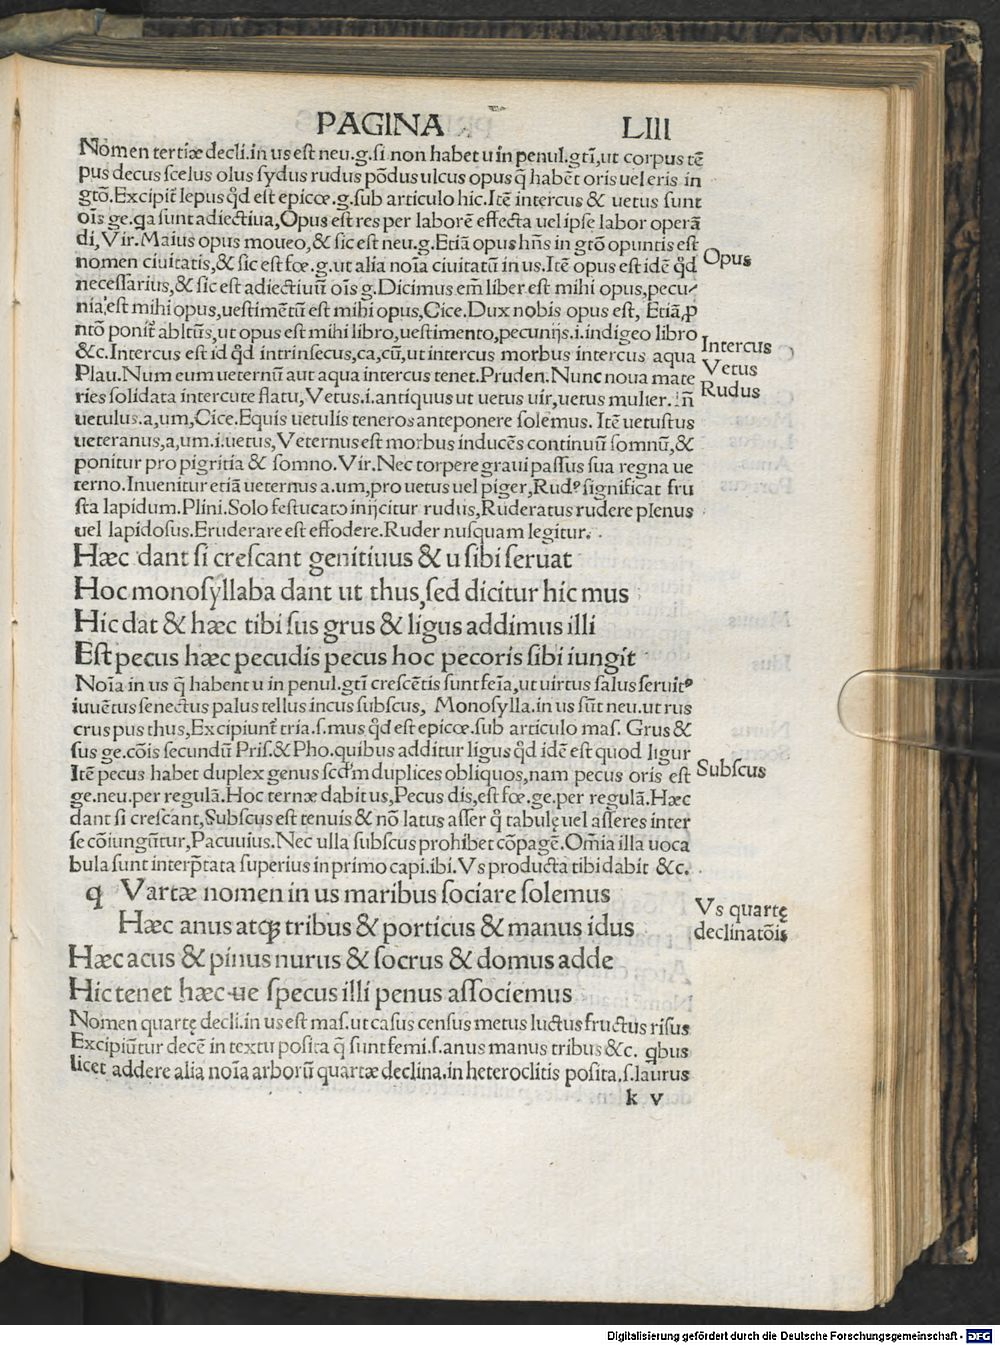 PAGINA LIII
Nomen tertiæ decli.in us est neu.g.si non habet u in penul.gtī,ut corpus tē
pus decus scelus olus sydus rudus pōdus ulcus opus q̄ habēt oris uel eris in
gtō.Excipit̄ lepus q̄d est epicœ.g.sub articulo hic.Itē intercus & uetus sunt
oīs ge.qa sunt adiectiua,Opus est res per laborē effecta uel ipse labor operā
di,Vir.Maius opus moueo,& sic est neu.g.Etiā opus hñs in gtō opuntis est
nomen ciuitatis,& sic est fœ.g.ut alia noīa ciuitatū in us.Itē opus est idē q̄d
necessarius,& sic est adiectiuū oīs g.Dicimus em̄ liber est mihi opus,pecu-
nia est mihi opus,uestimētū est mihi opus,Cice.Dux nobis opus est, Etiā,p
ntō ponit̄ abltūs,ut opus est mihi libro,uestimento,pecunijs.i.indigeo libro
&c.Intercus est id q̄d intrinsecus,ca,cū,ut intercus morbus intercus aqua
Plau.Num eum ueternū aut aqua intercus tenet.Pruden.Nunc noua mate
ries solidata intercute flatu,Vetus.i.antiquus ut uetus uir,uetus mulier.Iñ
uetulus.a,um,Cice.Equis uetulis teneros anteponere solemus. Itē uetustus
ueteranus,a,um.i.uetus,Veternus est morbus inducēs continuū somnū,&
ponitur pro pigritia & somno.Vir.Nec torpere graui passus sua regna ue
terno.Inuenitur etiā ueternus a.um,pro uetus uel piger,Rudꝰ significat fru
sta lapidum.Plini.Solo festucato inijcitur rudus,Ruderatus rudere plenus
uel lapidosus.Eruderare est effodere.Ruder nusquam legitur.
Opus
Intercus
Vetus
Rudus
Hæc dant si crescant genitiuus & u sibi seruat
Hoc monosyllaba dant ut thus,sed dicitur hic mus
Hic dat & hæc tibi sus grus & ligus addimus illi
Est pecus hæc pecudis pecus hoc pecoris sibi iungit
Noīa in us q̄ habent u in penul.gtī crescētis sunt feīa,ut uirtus salus seruitꝰ
iuuētus senectus palus tellus incus subscus, Monosylla.in us sūt neu.ut rus
crus pus thus,Excipiunt̄ tria.s.mus q̄d est epicœ.sub articulo mas. Grus &
sus ge.cōis secundū Pris.& Pho.quibus additur ligus q̄d idē est quod ligur
Itē pecus habet duplex genus scd̄m duplices obliquos,nam pecus oris est
ge.neu.per regulā.Hoc ternæ dabit us,Pecus dis,est fœ.ge.per regulā.Hæc
dant si crescant,Subscus est tenuis & nō latus asser q̄ tabulę uel asseres inter
se cōiungūtur,Pacuuius.Nec ulla subscus prohibet cōpagē.Om̄ia illa uoca
bula sunt interp̄tata superius in primo capi.ibi.Vs producta tibi dabit &c.
Subscus
q Vartæ nomen in us maribus sociare solemus
Hæc anus atq̨ tribus & porticus & manus idus
Hæc acus & pinus nurus & socrus & domus adde
Hic tenet hæc-ue specus illi penus associemus
Vs quartę
declinatōis
Nomen quartę decli.in us est mas.ut casus census metus luctus fructus risus
Excipiūtur decē in textu posita q̄ sunt femi.s.anus manus tribus &c. qbus
licet addere alia noīa arborū quartæ declina.in heteroclitis posita.s.laurus
k v
Digitalisierung gefördert durch die Deutsche Forschungsgemeinschaft - DFG